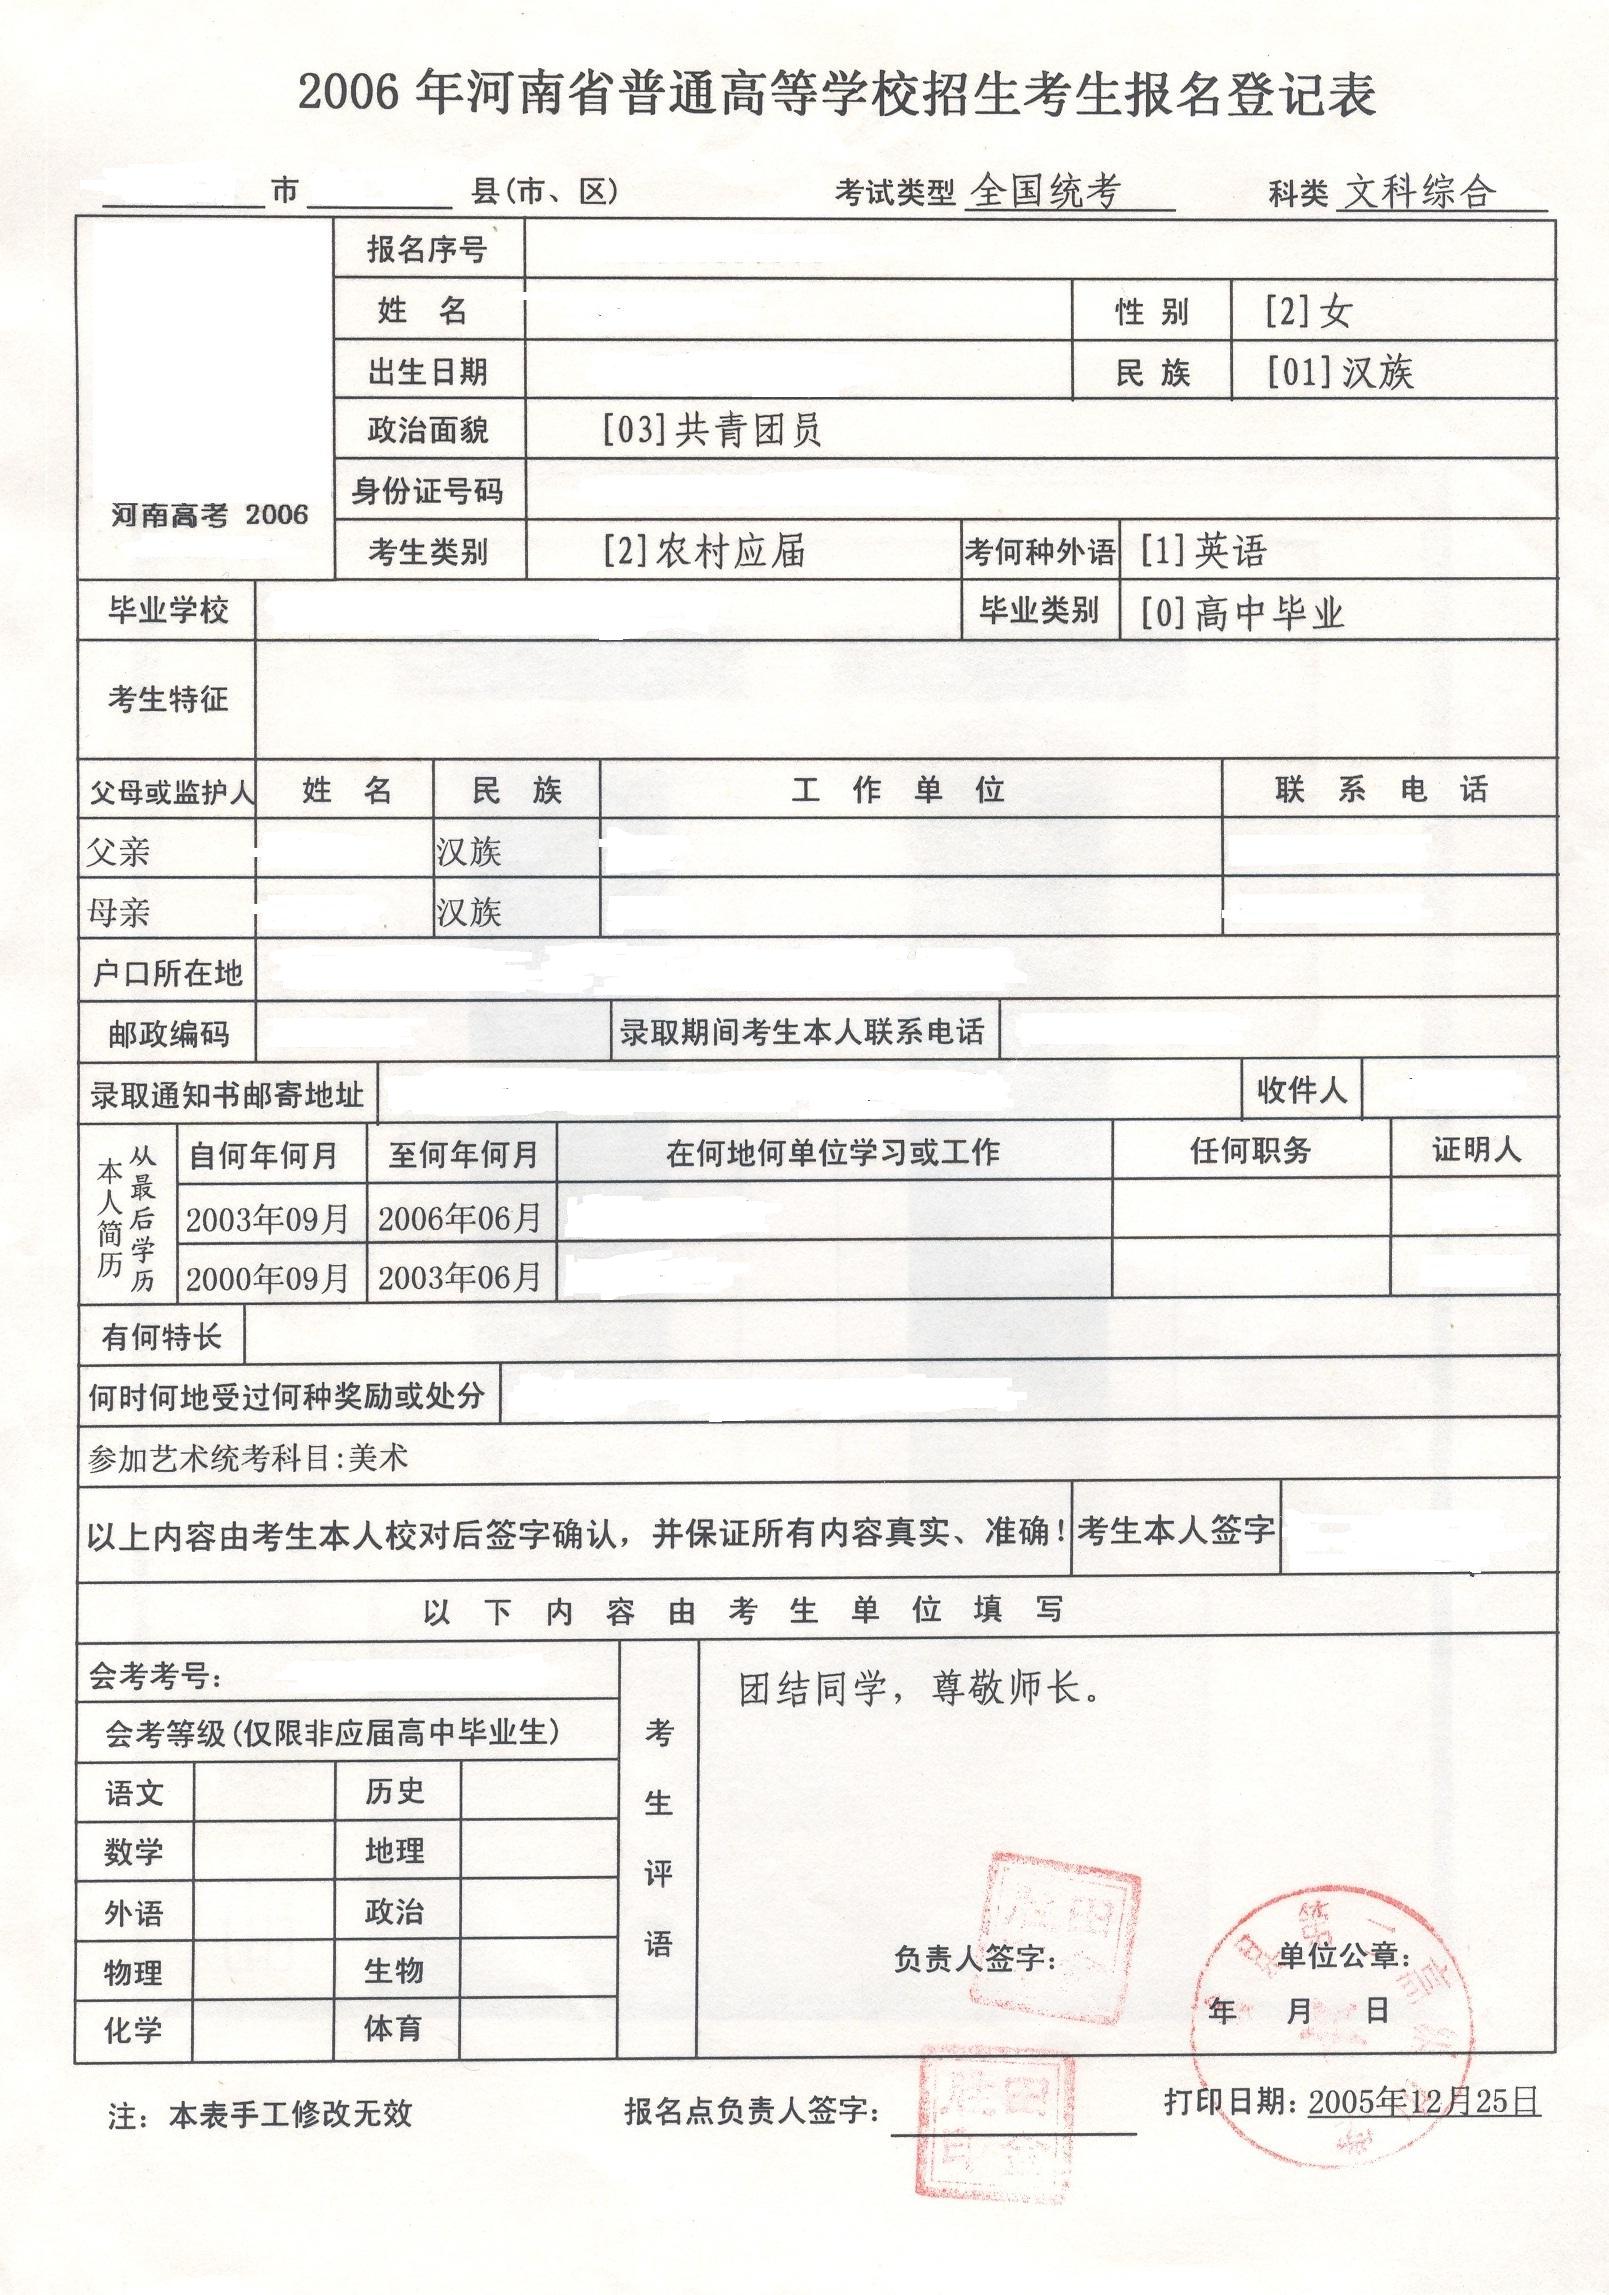 2006 年河南省普通高等学校招生考生报名登记表
市 县(市、区) 考试类型 全国统考 科类 文科综合
报名序号
姓 名 性 别 [2]女
出生日期 民 族 [01]汉族
政治面貌 [03]共青团员
身份证号码
河南高考 2006
考生类别 [2]农村应届 考何种外语 [1]英语
毕业学校 毕业类别 [0]高中毕业
考生特征
父母或监护人 姓 名 民 族 工 作 单 位 联 系 电 话
父亲 汉族
母亲 汉族
户口所在地
邮政编码 录取期间考生本人联系电话
录取通知书邮寄地址 收件人
从最后学历
本人简历
自何年何月 至何年何月 在何地何单位学习或工作 任何职务 证明人
2003年09月 2006年06月
2000年09月 2003年06月
有何特长
何时何地受过何种奖励或处分
参加艺术统考科目:美术
以上内容由考生本人校对后签字确认，并保证所有内容真实、准确! 考生本人签字
以 下 内 容 由 考 生 单 位 填 写
会考考号:
会考等级(仅限非应届高中毕业生)
语文 历史
数学 地理
外语 政治
物理 生物
化学 体育
考生评语
团结同学，尊敬师长。
负责人签字: 单位公章:
年 月 日
注：本表手工修改无效 报名点负责人签字: 打印日期: 2005年12月25日